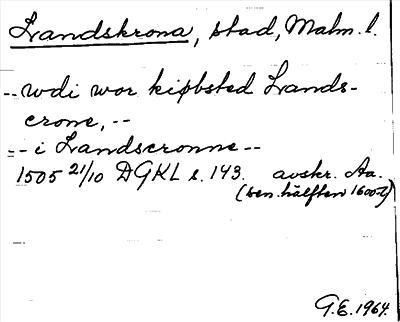 Landskrona, stad, Malm. l.
-- udi wor kiøbsted Lands-
crone, --
-- i Landscronne --
1505 21/10 DGKL s. 143. avskr. Aa.
(sen. hälften 1600-t)
G.E. 1964.